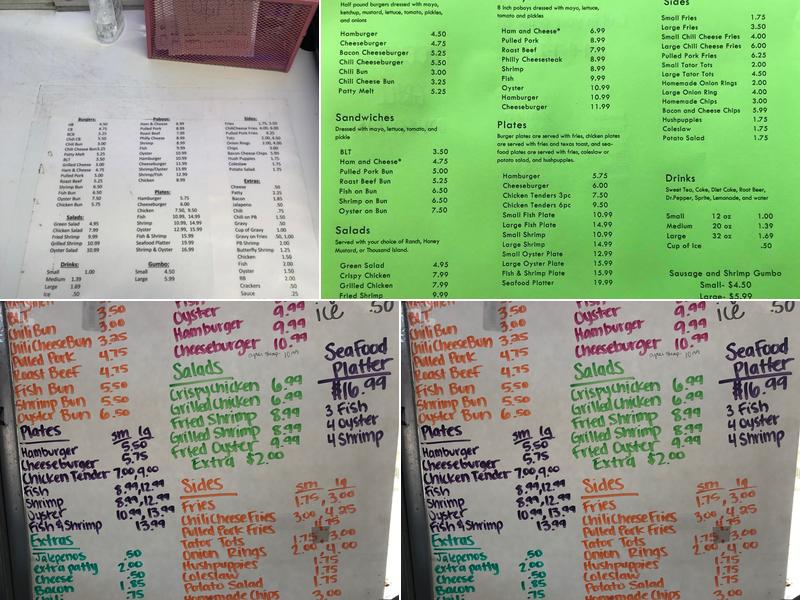 Burgers:
HB 4.50
CB 4.75
BCB 5.25
CCB 5.50
Chili Bun 3.00
Chili Cheese Bun 3.25
Patty Melt 5.25
BLT 3.50
Grilled Cheese 3.00
Ham & Cheese 4.75
Pulled Pork 5.00
Roast Beef 5.25
Shrimp Bun 6.50
Fish Bun 6.50
Oyster Bun 7.50
Chicken Bun 5.75
Salads:
Green Salad 4.95
Chicken Salad 7.99
Fried Shrimp 9.99
Grilled Shrimp 10.99
Oyster Salad 10.99
Drinks:
Small 1.00
Medium 1.39
Large 1.69
Ice .50
Poboys:
Ham & Cheese 6.99
Pulled Pork 8.99
Roast Beef 7.99
Philly Cheese 8.99
Shrimp 8.99
Fish 9.99
Oyster 10.99
Hamburger 10.99
Cheeseburger 11.99
Shrimp/Oyster 13.99
Shrimp/Fish 12.99
Chicken 8.99
Plates:
Hamburger 5.75
Cheeseburger 6.00
Chicken 7.50, 9.50
Fish 10.99, 14.99
Shrimp 10.99, 14.99
Oyster 12.99, 15.99
Fish & Shrimp 15.99
Seafood Platter 19.99
Shrimp & Oyster 16.99
Gumbo:
Small 4.50
Large 5.99
Sides:
Fries 1.75, 3.50
ChiliCheese Fries 4.00, 6.00
Pulled Pork Fries 6.25
Tots 2.00, 4.50
Onion Rings 2.00, 4.00
Chips 3.00
Bacon Cheese Chips 5.99
Hush Puppies 1.75
Coleslaw 1.75
Potato Salad 1.75
Extras:
Cheese .50
Patty 2.25
Bacon 1.85
Jalapeno .50
Chili .75
Chili on PB 1.50
Gravy .50
Cup of Gravy 1.00
Gravy on Fries .50, 1.00
PB Shrimp 2.00
Butterfly Shrimp 1.25
Chicken 1.50
Fish 2.00
Oyster 1.50
RB 2.00
Crackers .50
Sauce .25
Half pound burgers dressed with mayo,
ketchup, mustard, lettuce, tomato, pickles,
and onions
Hamburger 4.50
Cheeseburger 4.75
Bacon Cheeseburger 5.25
Chili Cheeseburger 5.50
Chili Bun 3.00
Chili Cheese Bun 3.25
Patty Melt 5.25
Sandwiches
Dressed with mayo, lettuce, tomato, and
pickle
BLT 3.50
Ham and Cheese* 4.75
Pulled Pork Bun 5.00
Roast Beef Bun 5.25
Fish on Bun 6.50
Shrimp on Bun 6.50
Oyster on Bun 7.50
Salads
Served with your choice of Ranch, Honey
Mustard, or Thousand Island.
Green Salad 4.95
Crispy Chicken 7.99
Grilled Chicken 7.99
Fried Shrimp 9.99
8 inch poboys dressed with mayo, lettuce,
tomato and pickles
Ham and Cheese* 6.99
Pulled Pork 8.99
Roast Beef 7.99
Philly Cheesesteak 8.99
Shrimp 8.99
Fish 9.99
Oyster 10.99
Hamburger 10.99
Cheeseburger 11.99
Plates
Burger plates are served with fries, chicken plates
are served with fries and texas toast, and sea-
food plates are served with fries, coleslaw or
potato salad, and hushpuppies.
Hamburger 5.75
Cheeseburger 6.00
Chicken Tenders 3pc 7.50
Chicken Tenders 6pc 9.50
Small Fish Plate 10.99
Large Fish Plate 14.99
Small Shrimp 10.99
Large Shrimp 14.99
Small Oyster Plate 12.99
Large Oyster Plate 15.99
Fish & Shrimp Plate 15.99
Seafood Platter 19.99
Sides
Small Fries 1.75
Large Fries 3.50
Small Chili Cheese Fries 4.00
Large Chili Cheese Fries 6.00
Pulled Pork Fries 6.25
Small Tator Tots 2.00
Large Tator Tots 4.50
Homemade Onion Rings 2.00
Large Onion Ring 4.00
Homemade Chips 3.00
Bacon and Cheese Chips 5.99
Hushpuppies 1.75
Coleslaw 1.75
Potato Salad 1.75
Drinks
Sweet Tea, Coke, Diet Coke, Root Beer,
Dr.Pepper, Sprite, Lemonade, and water
Small 12 oz 1.00
Medium 20 oz 1.39
Large 32 oz 1.69
Cup of Ice .50
Sausage and Shrimp Gumbo
Small- $4.50
Large- $5.99
BLT 3.50
Chili Bun 3.00
Chili Cheese Bun 3.25
Pulled Pork 4.75
Roast Beef 4.75
Fish Bun 5.50
Shrimp Bun 5.50
Oyster Bun 6.50
Plates sm lg
Hamburger 5.50
Cheeseburger 5.75
Chicken Tender 7.00, 9.00
Fish 8.99, 12.99
Shrimp 8.99, 12.99
Oyster 10.99, 13.99
Fish & Shrimp 13.99
Extras
Jalepenos .50
extra patty 2.00
Cheese .50
Bacon 1.85
.75
Fish 9.99
Oyster 9.99
Hamburger 9.99
Cheeseburger 10.99
Salads
Crispy Chicken 6.99
Grilled Chicken 6.99
Fried Shrimp 8.99
Grilled Shrimp 8.99
Fried Oyster 9.99
Extra $2.00
Sides sm lg
Fries 1.75, 3.00
Chili Cheese Fries 3.00, 4.25
Pulled Pork Fries 4.75
Tator Tots 1.75 3.00
Onion Rings 2.00, 4.00
Hushpuppies 1.75
Coleslaw 1.75
Potato Salad 1.75
Homemade Chips 3.00
ice .50
Seafood
Platter
$16.99
3 Fish
4 Oyster
4 Shrimp
BLT 3.50
Chili Bun 3.00
Chili Cheese Bun 3.25
Pulled Pork 4.75
Roast Beef 4.75
Fish Bun 5.50
Shrimp Bun 5.50
Oyster Bun 6.50
Plates sm lg
Hamburger 5.50
Cheeseburger 5.75
Chicken Tender 7.00, 9.00
Fish 8.99, 12.99
Shrimp 8.99, 12.99
Oyster 10.99, 13.99
Fish & Shrimp 13.99
Extras
Jalepenos .50
extra patty 2.00
Cheese .50
Bacon 1.85
.75
Fish 9.99
Oyster 9.99
Hamburger 9.99
Cheeseburger 10.99
Salads
Crispy Chicken 6.99
Grilled Chicken 6.99
Fried Shrimp 8.99
Grilled Shrimp 8.99
Fried Oyster 9.99
Extra $2.00
Sides sm lg
Fries 1.75, 3.00
Chili Cheese Fries 3.00, 4.25
Pulled Pork Fries 4.75
Tator Tots 1.75 3.00
Onion Rings 2.00, 4.00
Hushpuppies 1.75
Coleslaw 1.75
Potato Salad 1.75
Homemade Chips 3.00
ice .50
Seafood
Platter
$16.99
3 Fish
4 Oyster
4 Shrimp